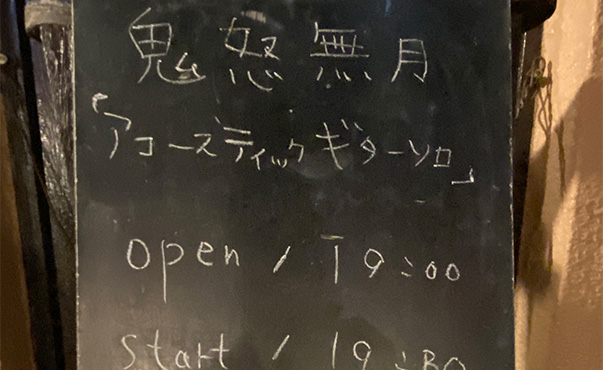 鬼怒無月
「アコースティックギターソロ」
open / 19:00
start / 19:30